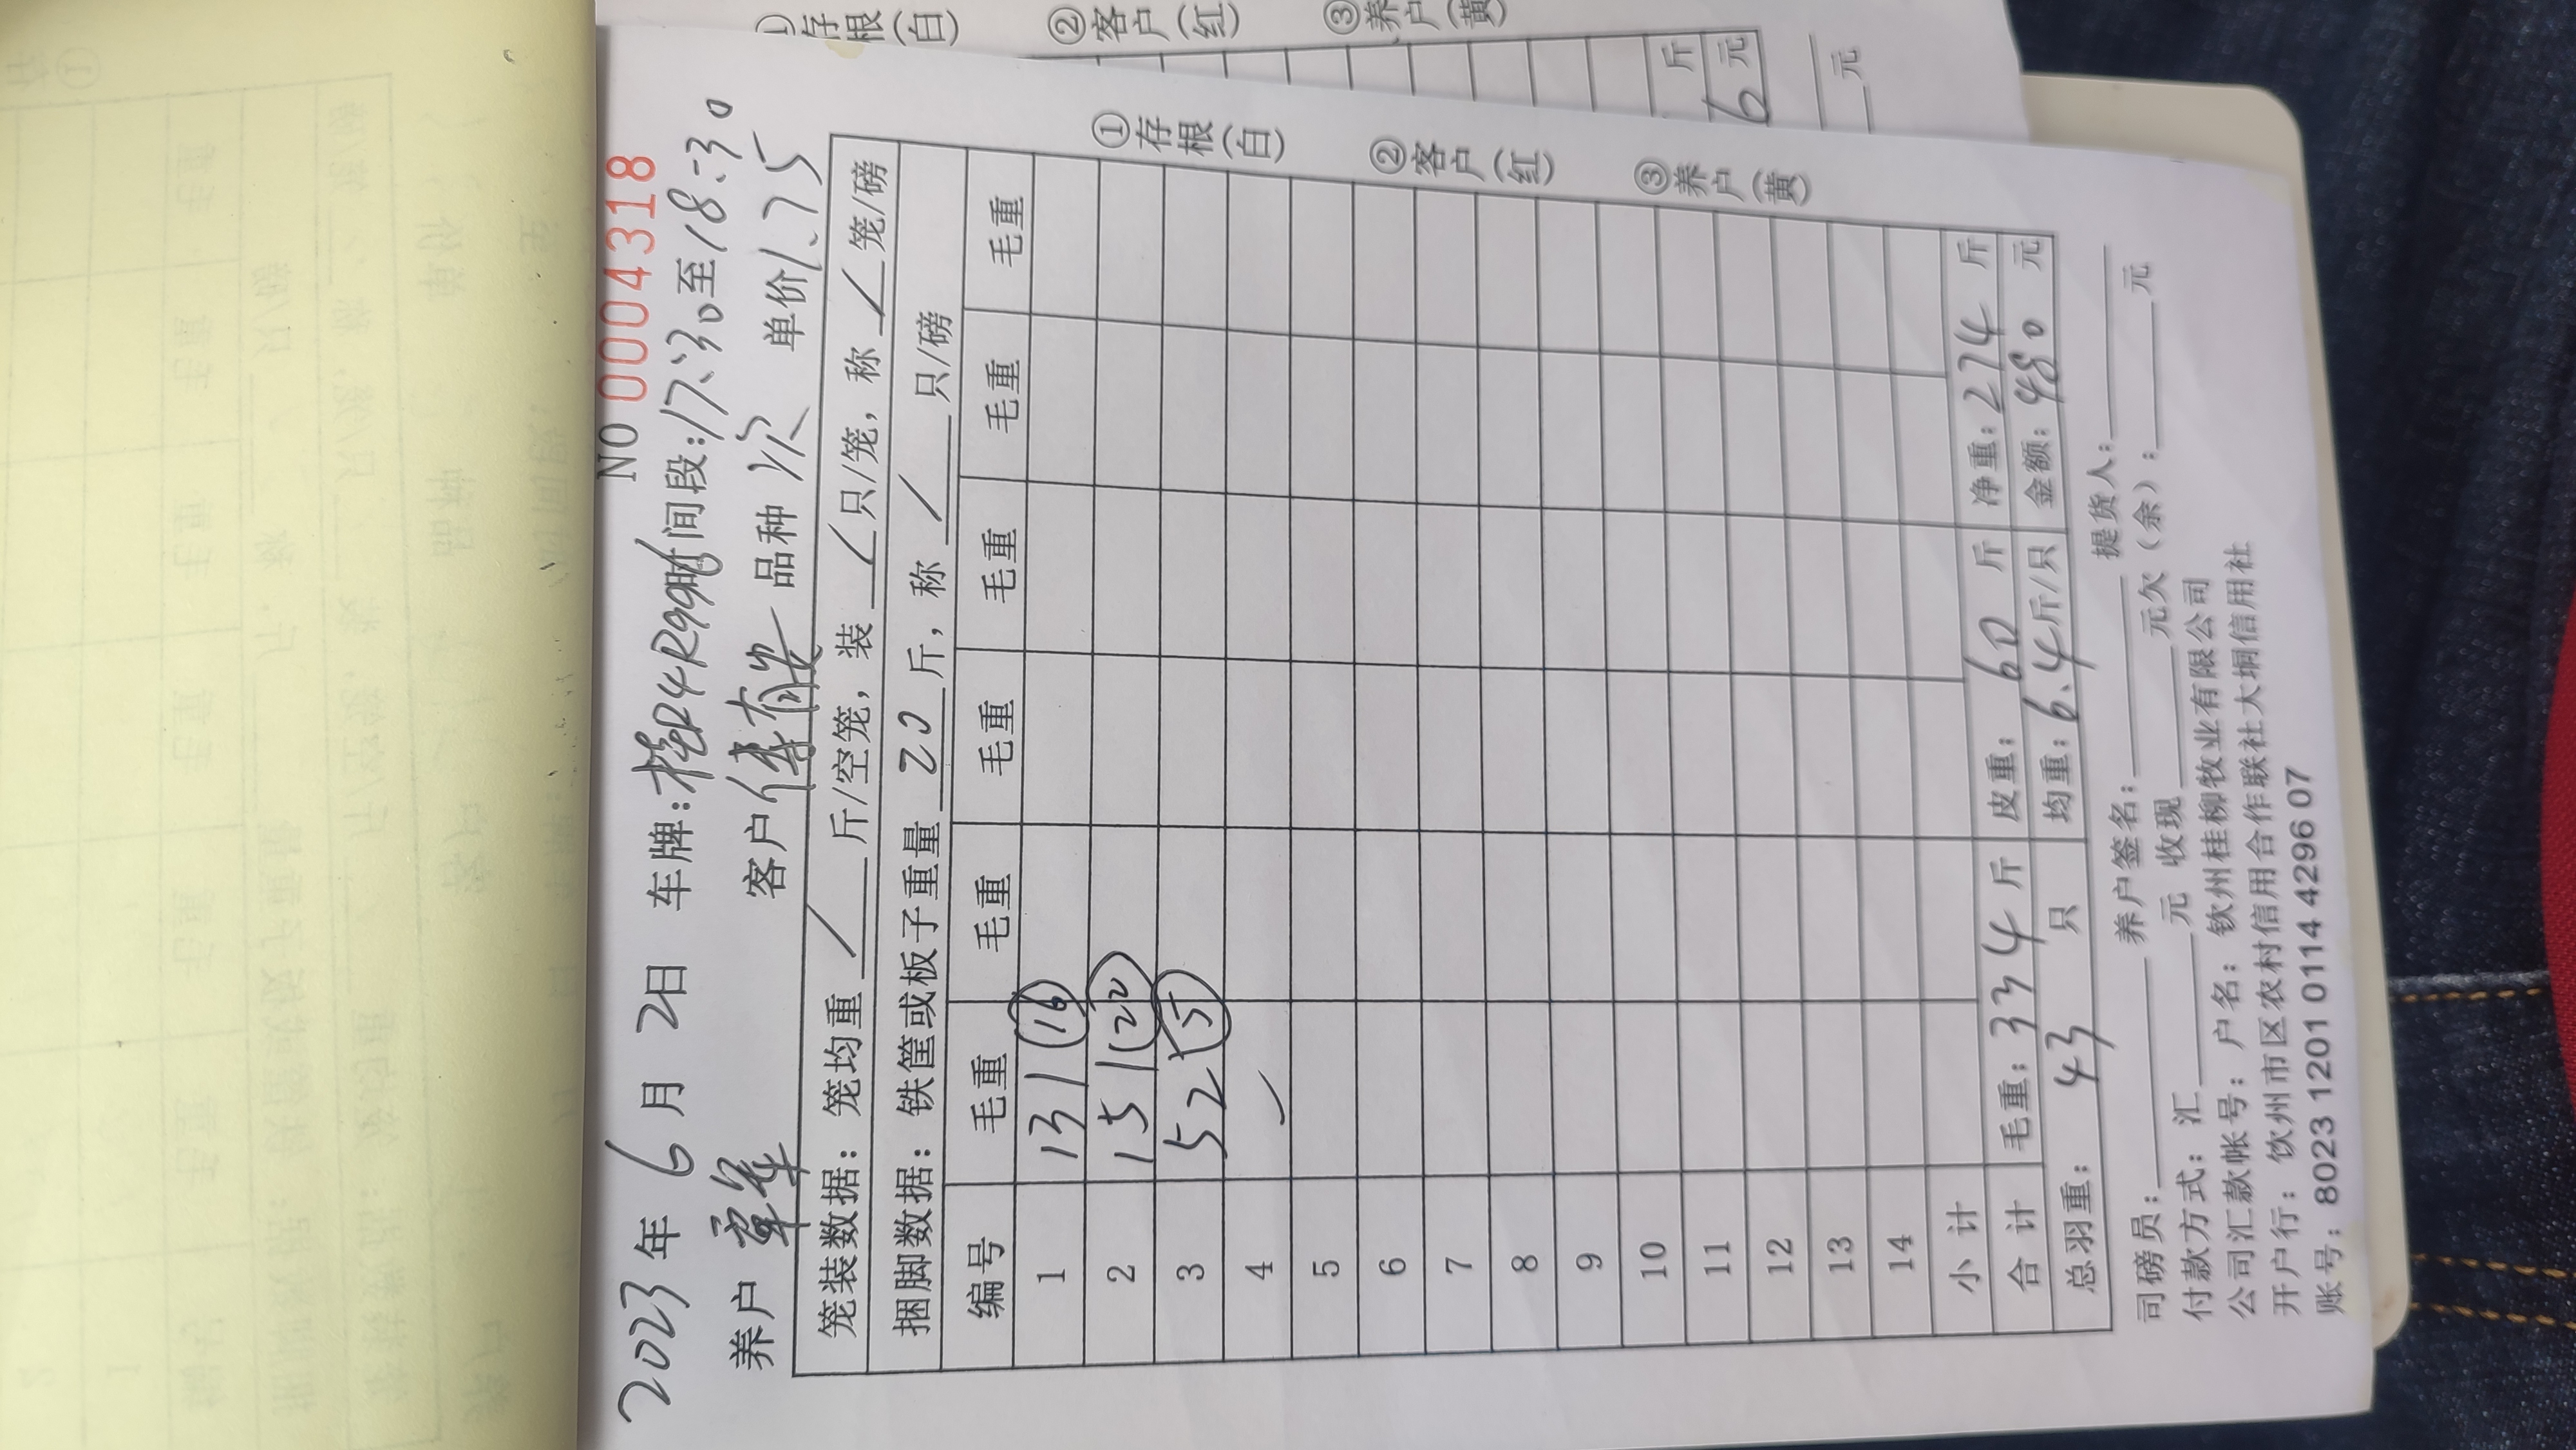 NO 0004318
2023年 6月 2日 车牌:桂R4R99 时间段:17:30至18:30
养户 覃华 客户 傅有安 品种 次 单价1.75
笼装数据: 笼均重 / 斤/空笼, 装 / 只/笼, 称 / 笼/磅
捆脚数据: 铁筐或板子重量 20 斤, 称 / 只/磅
编号 毛重 毛重 毛重 毛重 毛重 毛重
1 131 (16)
2 151 (22)
3 52 (5)
4
5
6
7
8
9
10
11
12
13
14
小计
合计 毛重: 334斤 皮重: 60 斤 净重: 274 斤
总羽重: 43 只 均重: 6.4斤/只 金额: 480 元
司磅员: 养户签名: 提货人:
付款方式: 汇 元 收现 元欠(余): 元
公司汇款帐号: 户名: 钦州桂柳牧业有限公司
开户行: 钦州市区农村信用合作联社大垌信用社
账号: 8023 1201 0114 4296 07
①存根(白)
②客户(红)
③养户(黄)
①存根(白)
②客户(红)
③养户(黄)
斤
6 元
元